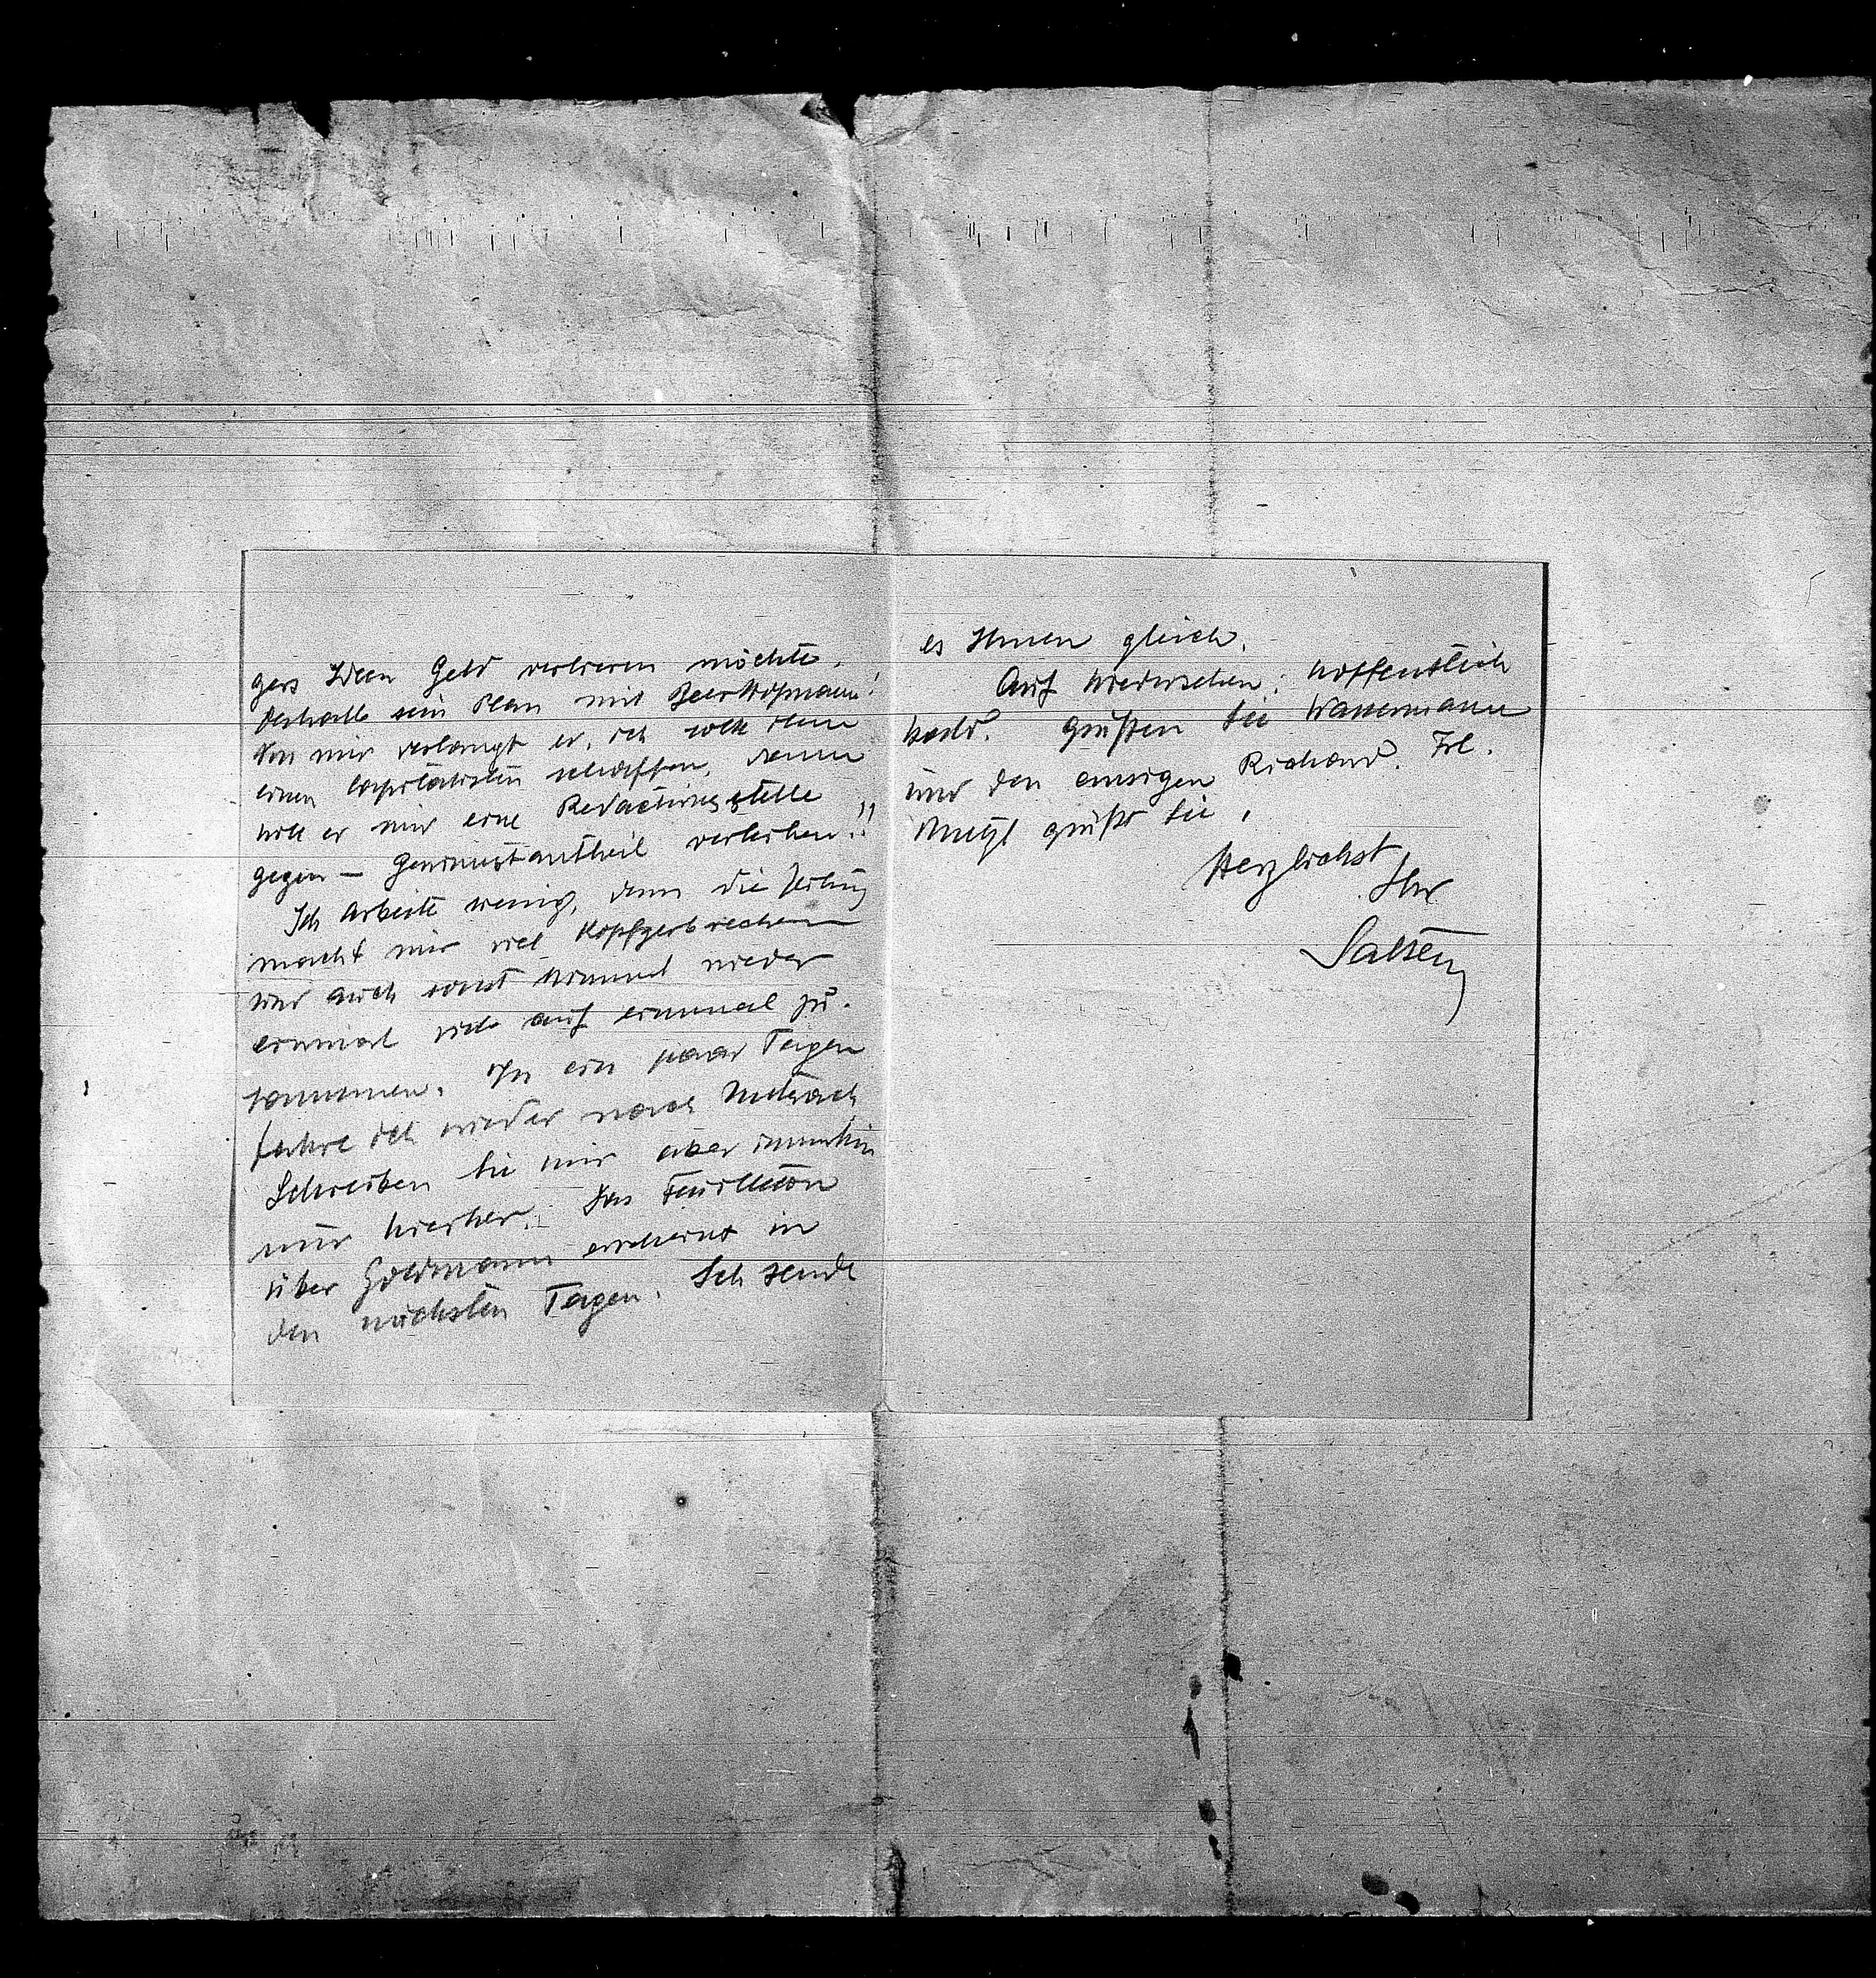 gers Ideen Geld verlieren möchte.
Deshalb sein Plan mit Beer-Hofmann!
Von mir verlangt er, ich solle ihm
einen Capitalisten schaffen, dann
will er mir eine Redactionsstelle
gegen – Gewinnstantheil verleihen!!
Ich arbeite wenig, denn die Zeitung
macht mir viel Kopfzerbrechen
und auch sonst kommt wieder
einmal viel auf einmal zu-
sammen. In ein paar Tagen
fahre ich wieder nach
Schreiben Sie mir aber immerhin
nur hierher. Das Feuilleton
über Goldmann erscheint in
den nächsten Tagen. Ich sende
es Ihnen gleich.
Auf Wiedersehen: hoffentlich
bald. Grüßen Sie Wassermann
und den einzigen Richard. Frl.
Metzl grüßt Sie,
Herzlichst
Ihr
Salten